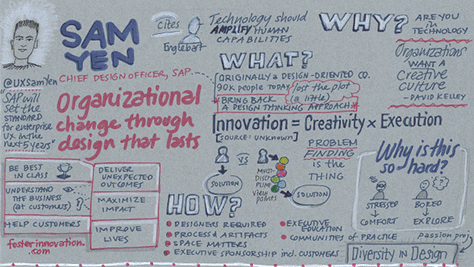 SAM
YEN
@UXSamYen
CHIEF DESIGN OFFICER, SAP
"SAP will
set the
STANDARD
for enterprise
UX in the
next 5 years"
Organizational
change through
design that lasts
BE BEST
IN CLASS
UNDERSTAND
the BUSINESS
(at customers)
HELP CUSTOMERS
DELIVER
UNEXPECTED
OUTCOMES
MAXIMIZE
IMPACT
IMPROVE
LIVES
fosterinnovation.
com
Cites
Englebart
Technology should
AMPLIFY HUMAN
CAPABILITIES
WHAT?
ORIGINALLY a DESIGN-ORIENTED CO.
90K PEOPLE TODAY
"lost the plot
(a little)
BRING BACK
A DESIGN THINKING APPROACH
Innovation = Creativity x Execution
[source: unknown]
VS
SOLUTION
MULTI-
DISCI-
PLINE
VIEW
POINTS
SOLUTION
PROBLEM
FINDING
is the
THING
HOW?
DESIGNERS REQUIRED
PROCESS & ARTIFACTS
SPACE MATTERS
EXECUTIVE SPONSORSHIP incl. CUSTOMERS
EXECUTIVE
EDUCATION
COMMUNITIES OF PRACTICE
WHY?
ARE YOU
in
TECHNOLOGY
"Organizations
WANT a
Creative
culture"
- DAVID KELLEY
Why is this
so hard?
STRESSED
COMFORT
BORED
EXPLORE
Passion proj.
Diversity in Design